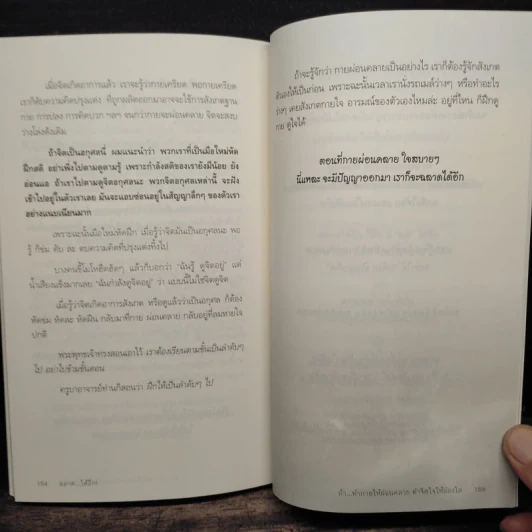 เมื่อจิตเกิดอาการแล้ว เราจะรู้ว่ากายเครียด พอกายเครียด
เราก็ดับความคิดปรุงแต่ง ที่ถูกผลิตออกมาอาจจะใช้การสังเกตฐาน
กาย การปลง การตัดบวก ฯลฯ จนกว่ากายจะผ่อนคลาย จิตจะสงบ
ว่างโล่งดังเดิม
ถ้าจิตเป็นอกุศลนี่ ผมแนะนำว่า พวกเราที่เป็นมือใหม่หัด
ฝึกสติ อย่าเพิ่งไปตามดูตามรู้ เพราะกำลังสติของเรายังมีน้อย ยัง
อ่อนแอ ถ้าเราไปตามดูจิตอกุศลนะ พวกจิตอกุศลเหล่านี้ จะฝัง
เข้าไปอยู่ในตัวเราเลย มันจะแอบซ่อนอยู่ในสัญญาลึกๆ ของตัวเรา
อย่างแนบเนียนมาก
เพราะฉะนั้นมือใหม่หัดฝึก เมื่อรู้ว่าจิตมันเป็นอกุศลนะ พอ
รู้ ก็ข่ม ดับ ละ ตบความคิดที่ปรุงแต่งทิ้งไป
บางคนขี้โมโหฮึดฮัดๆ แล้วก็บอกว่า “ฉันรู้ ดูจิตอยู่” แต่
น้ำเสียงแข็งมากเลย “ฉันกำลังดูจิตอยู่” ว่า แบบนี้ไม่ใช่จิตดูจิต
เมื่อรู้ว่าจิตเกิดอาการสังเกต หรือดูแล้วว่าเป็นอกุศล ก็ต้อง
หัดข่ม หัดละ หัดฝืน กลับมาที่กาย ผ่อนคลาย กลับอยู่ที่ลมหายใจ
ปกติ
พระพุทธเจ้าทรงสอนเอาไว้ เราต้องเรียนตามชั้นเป็นลำดับๆ
ไป อย่าไปข้ามขั้นตอน
ครูบาอาจารย์ท่านก็สอนว่า ฝึกให้เป็นลำดับๆ ไป
184 ฉลาด...ได้อีก
ถ้าจะรู้จักว่า กายผ่อนคลายเป็นอย่างไร เราก็ต้องรู้จักสังเกต
ตัวเองให้เป็นก่อน เพราะฉะนั้นเวลาเรานั่งรถเมล์ว่างๆ หรือทำอะไร
ว่างๆ เคยสังเกตกายใจ อารมณ์ของตัวเองไหมล่ะ อยู่ที่ไหน ก็ฝึกดู
กาย ดูใจได้
ตอนที่กายผ่อนคลาย ใจสบายๆ
นี่แหละ จะมีปัญญาออกมา เราก็จะฉลาดได้อีก
ถ้า...ทำกายให้ผ่อนคลาย ทำจิตใจให้ผ่องใส 185